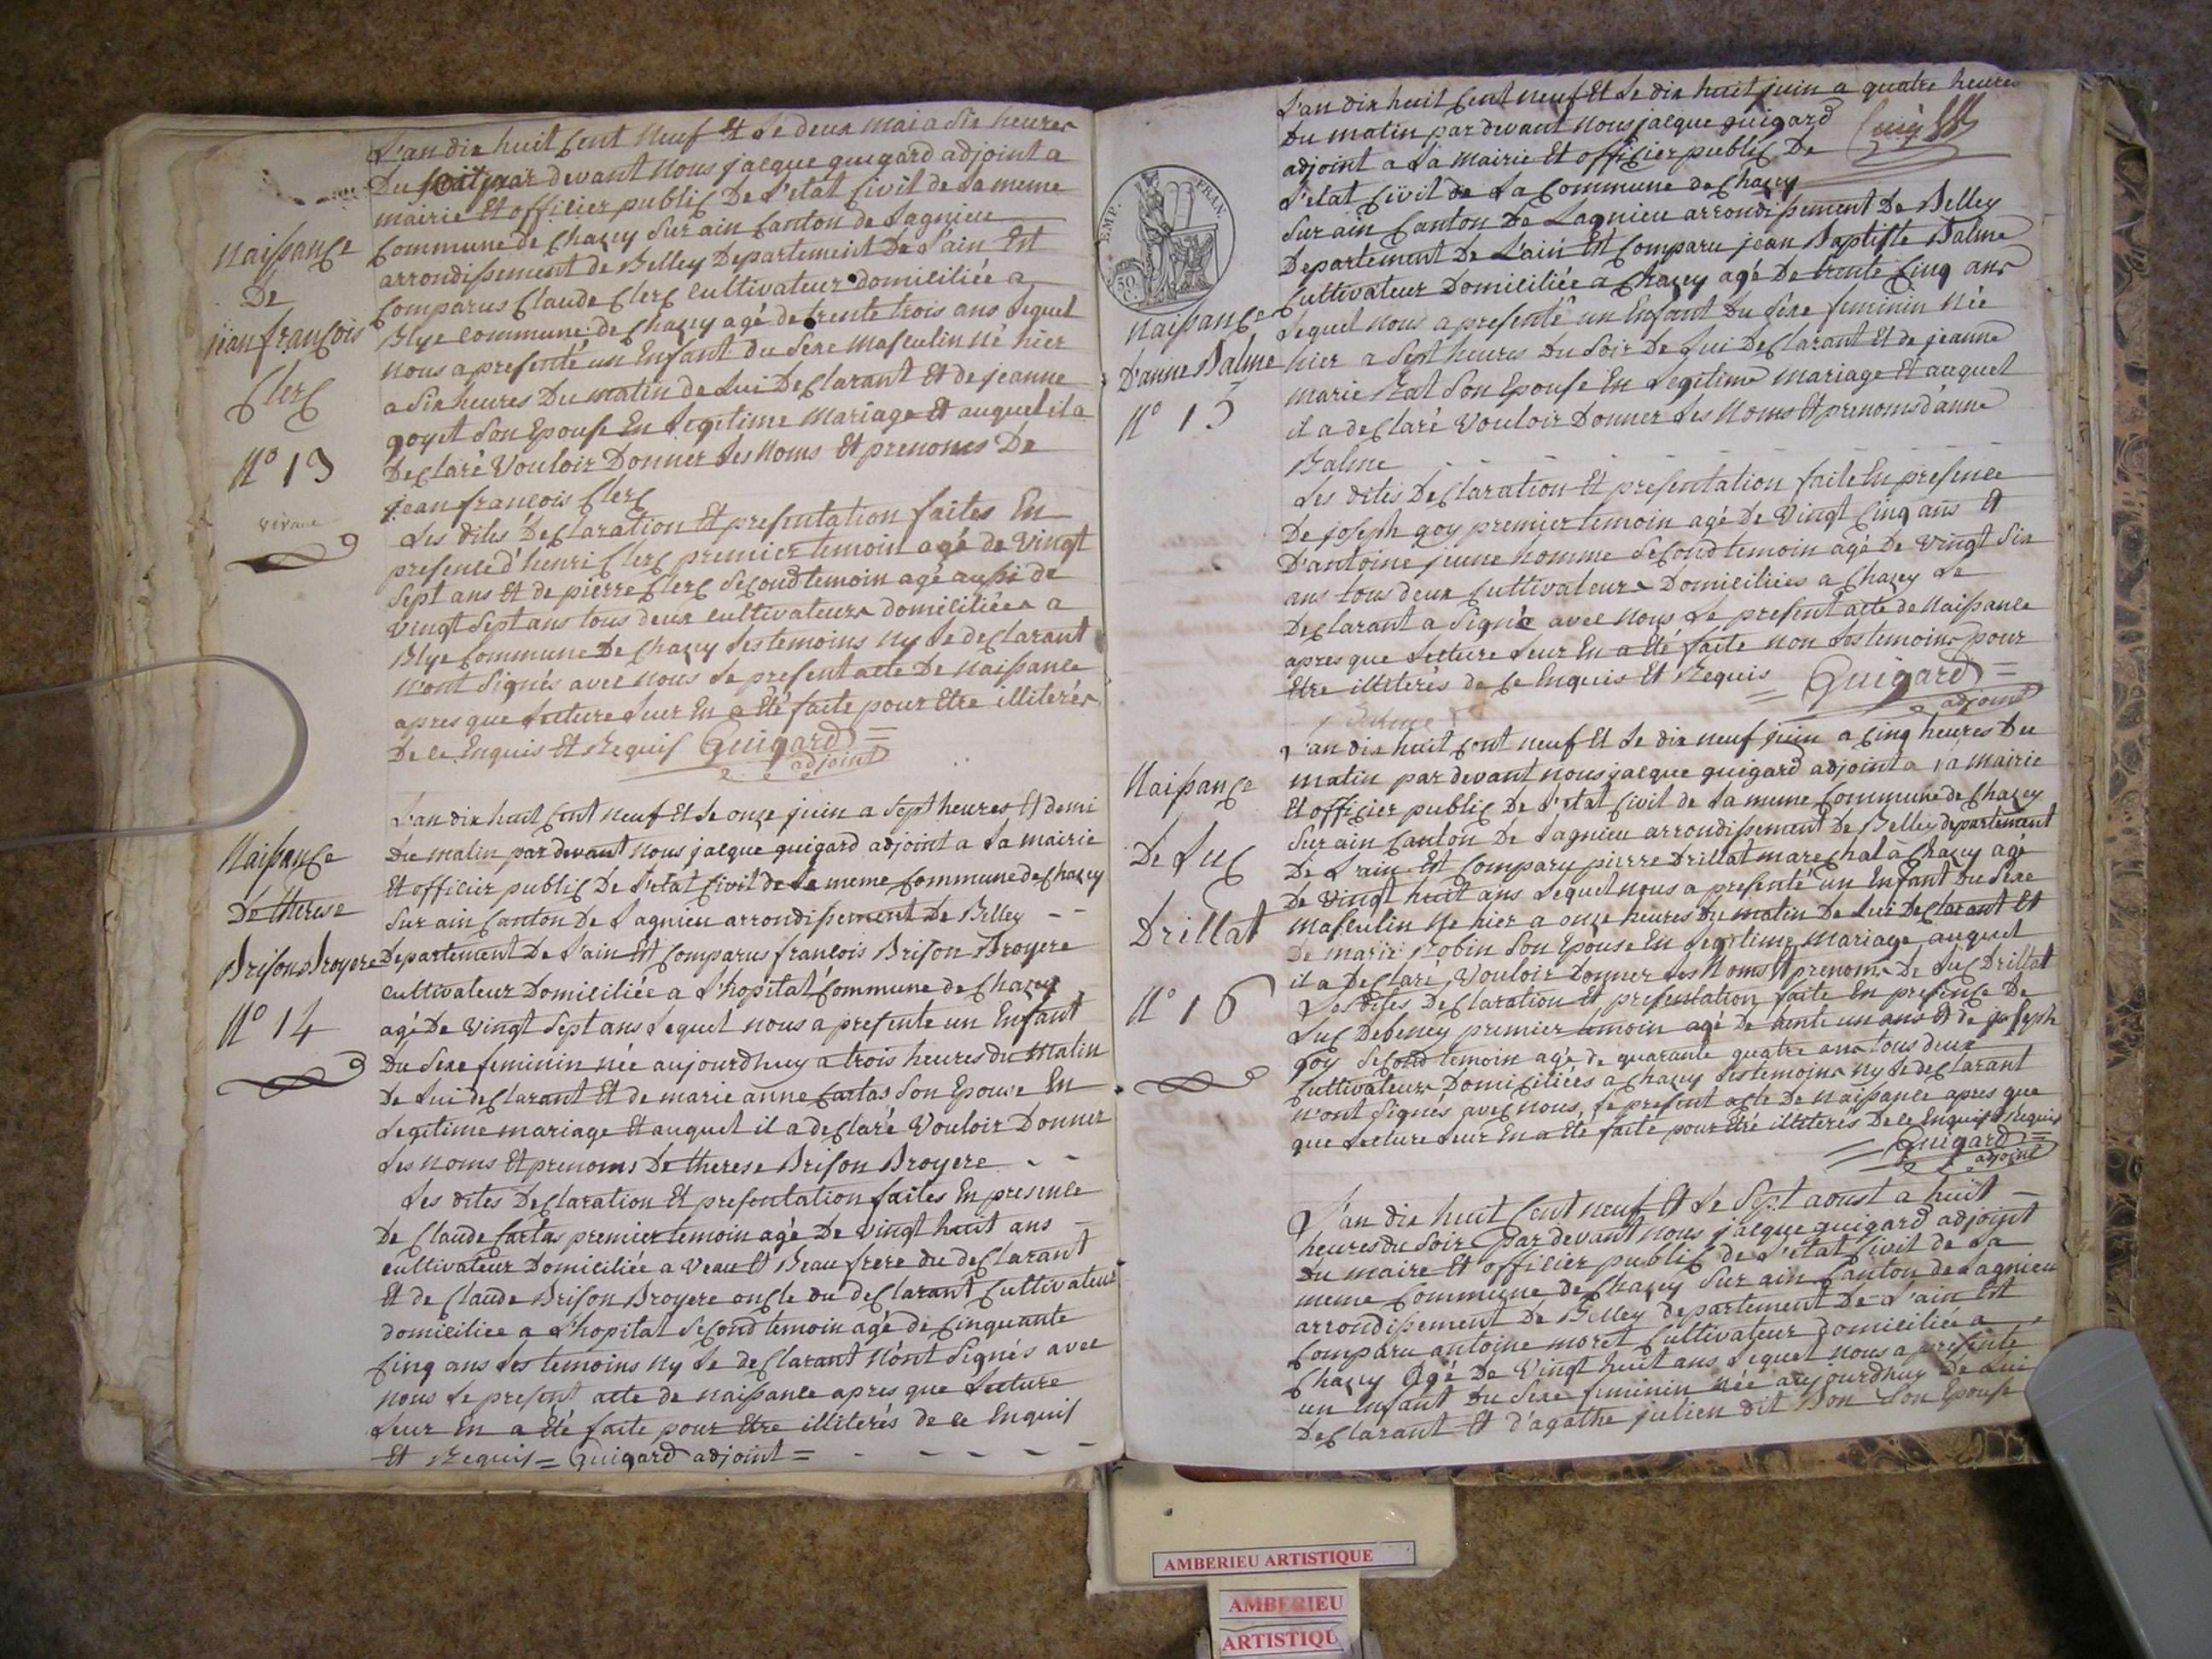 L'an dix huit Cent Neuf Et Le deux mai a Six heures
Du par devant Nous jacque guigard adjoint a
mairie Et officier public De L'etat Civil de La meme
Commune de Chazey Sur ain Canton de Lagnieu
arrondissement de Belley Departement De L'ain Est
Comparus Claude Clerc Cultivateur domiciliée a
Blye Commune de Chazey agé de trente trois ans Lequel
Nous a presenté un Enfant du Sexe Masculin Né hier
a Six heures Du matin de Lui Declarant Et de jeanne
goyet Son Epouse En Legitime Mariage Et auquel il a
Declaré Vouloir Donner Les Noms Et prenoms De
jean françois Clerc
Les dites Declaration Et presentation faites En
presence d'henri Clerc premier temoin agé de Vingt
Sept ans Et de pierre Clerc Second temoin agé aussi de
Vingt Sept ans tous deux Cultivateurs domiciliées a
Blye Commune De Chazey Les temoins Ny Le declarant
N'ont Signés avec Nous Le present acte De Naissance
apres que Lecture Leur En a Eté faite pour Etre illiterés
De ce Enquis Et Requis Guigard =
adjoint
Naissance
De
jean françois
Clerc
N° 13
L'an dix huit Cent Neuf Et Le onze juin a Sept heures Et demi
Du matin par devant Nous jacque guigard adjoint a La mairie
Et officier public De L'etat Civil de La meme Commune de Chazey
Sur ain Canton De Lagnieu arrondissement De Belley - -
Departement De L'ain Est Comparus francois Brison Broyere
Cultivateur Domiciliée a L'hopital Commune de Chazey
agé De Vingt Sept ans Lequel Nous a presente un Enfant
Du Sexe feminin née aujourdhuy a trois heures du Matin
De Lui declarant Et de marie anne Cartas Son Epouse En
Legitime mariage Et auquel il a declaré Vouloir Donner
Les Noms Et prenoms De therese Brison Broyere - -
Les dites Declaration Et presentation faites En presence
De Claude Cartas premier temoin agé De Vingt huit ans -
Cultivateur Domiciliée a Veau Et Beau frere du declarant
Et de Claude Brison Broyere oncle du declarant Cultivateur
domiciliee a L'hopital Second temoin agé de Cinquante
Cinq ans Les temoins Ny Le declarant N'ont Signés avec
Nous Le present acte de Naissance apres que Lecture
Leur En a Eté faite pour Etre illiterés de ce Enquis
Et Requis = Guigard adjoint = - - - - -
Naissance
De therese
Brison Broyere
N° 14
L'an dix huit Cent neuf Et Le dix huit juin a quatre heures
Du matin par devant Nous jacque guigard
adjoint a La Mairie Et officier public De
L'etat Civil de La Commune de Chazey
Sur ain Canton De Lagnieu arrondissement De Belley
Departement De L'ain Est Comparu jean Baptiste Balme
Cultivateur Domiciliée a Chazey agé De trente Cinq ans
Lequel Nous a presenté un Enfant Du Sexe feminin Née
hier a Sept heures Du Soir De Lui Declarant Et de jeanne
marie Rat Son Epouse En Legitime Mariage Et auquel
il a declaré Vouloir Donner Les Noms Et prenoms d'anne
Balme
Les dites Declaration Et presentation faite En presence
De joseph goy premier temoin agé De Vingt Cinq ans Et
D'antoine jeune homme Second temoin agé De Vingt Six
ans tous deux Cultivateurs Domiciliées a Chazey Le
Declarant a Signé avec Nous Le present acte de Naissance
apres que Lecture Leur En a Eté faite non Les temoins pour
Etre illiterés de ce Enquis Et Requis = Guigard =
adjoint
EMP. FRAN.
50
C.
Naissance
D'anne Balme
N° 15
L'an dix huit Cent neuf Et Le dix neuf juin a Cinq heures Du
matin par devant nous jacque guigard adjoint a La mairie
Et officier public De L'etat Civil de La meme Commune de Chazey
Sur ain Canton De Lagnieu arrondissement De Belley departement
De L'ain Est Comparu pierre Drillat marechal a Chazey agé
De Vingt huit ans Lequel nous a presenté un Enfant Du Sexe
Masculin Ne hier a onze heures Du matin De Lui Declarant Et
De marie Robin Son Epouse En Legitime Mariage auquel
il a Declaré Vouloir Donner Les Noms Et prenoms De Luc Drillat
Les dites Declaration Et presentation faite En presence De
Luc Debeney premier temoin agé De trente un ans Et de joseph
goy Second temoin agé de quarante quatre ans tous deux
Cultivateurs Domiciliées a Chazey Les temoins Ny Le declarant
N'ont Signés avec Nous Le present acte De Naissance apres que
que Lecture Leur En a Eté faite pour Etre illiterés De ce Enquis Et Requis
= Guigard =
adjoint
Naissance
De Luc
Drillat
N° 16
L'an dix huit Cent neuf Et Le Sept aoust a huit -
heures du Soir par devant Nous jacque guigard adjoint
Du maire Et officier public de L'etat Civil de La
meme Commune de Chazey Sur ain Canton de Lagnieu
arrondissement De Belley departement De L'ain Est
Comparu antoine moret Cultivateur Domiciliée a
Chazey Agé De Vingt huit ans Lequel Nous a presenté
un Enfant Du Sexe feminin née aujourdhuy De Lui
Declarant Et d'agathe julien dit Bon Son Epouse
AMBERIEU ARTISTIQUE
AMBERIEU
ARTISTIQU